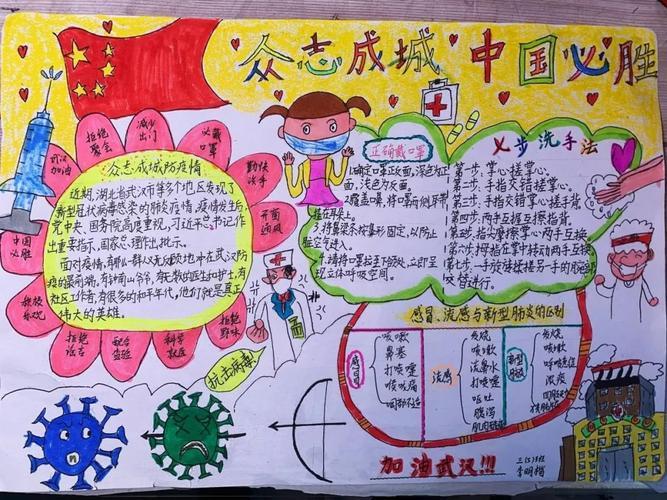 众志成城 中国必胜
武汉加油
拒绝聚会
减少出门
必戴口罩
勤快洗手
开窗通风
拒绝野味
科学就医
配合查验
拒绝谣言
积极乐观
中国必胜
众志成城防疫情
近期,湖北省武汉市等多个地区发现了
新型冠状病毒感染的肺炎疫情,疫情发生后,
党中央、国务院高度重视,习近平总书记作
出重要指示,国家总理作出批示。
面对疫情,有那么一群人无畏地冲在武汉防
疫的最前端,有钟南山爷爷,有无数的医生和护士,有
社区工作者,有很多的和平年代,他们就是真正
伟大的英雄。
正确戴口罩
面,浅色为反面。
2.覆盖嘴,将口罩两侧耳带
挂在耳朵上。
3.将鼻梁条按紧固定,以防止
空气进入。
4.请将口罩拉至下颌处,立即呈
现立体呼吸空间。
七步洗手法
第一步,掌心搓掌心。
第二步,手指交错搓掌心。
第三步,手指交错搓手背。
第四步,两手互握互擦指背。
第五步,指尖摩擦掌心两手互换。
第六步,拇指在掌中转动两手互换。
第七步,一手旋转搓揉另一手的腕部
交替进行。
抗击病毒
感冒、流感与新型肺炎的区别
感冒
咳嗽
鼻塞
打喷嚏
喉咙痛
流感
发烧
咳嗽
流鼻水
打喷嚏
呕吐
腹泻
肌肉酸痛
新型肺炎
发烧
咳嗽
呼吸急促
浓痰
加油武汉!!!